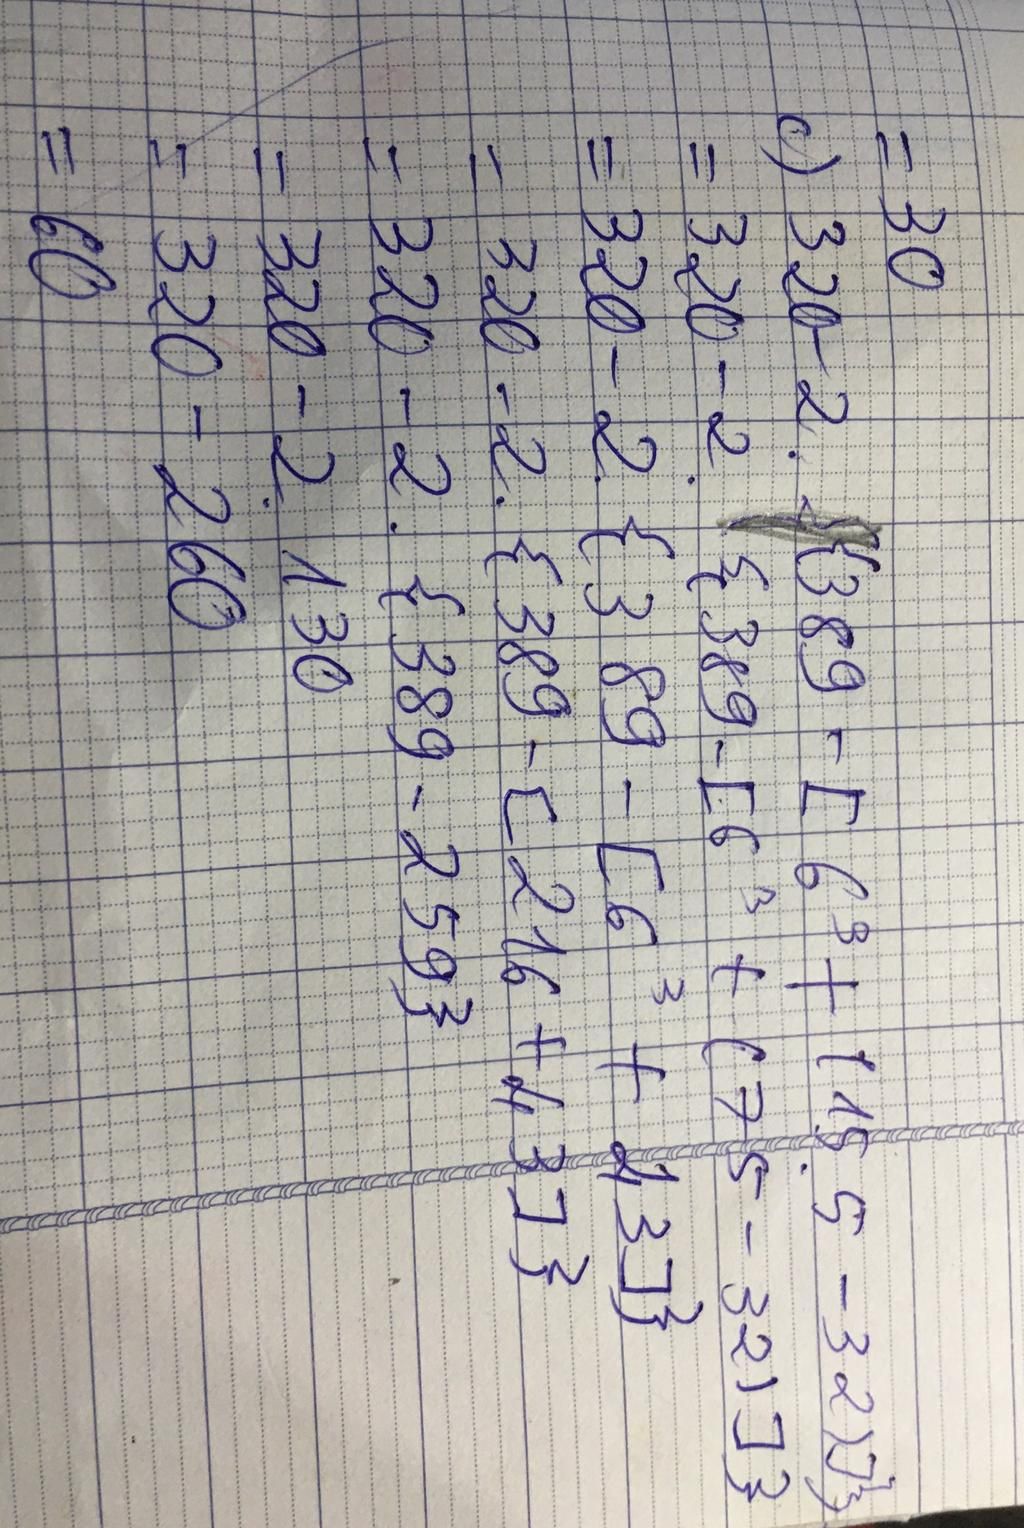 = 30
c) 320 - 2 . {389 - [6³ + (15 . 5 - 32)]}
= 320 - 2 . {389 - [6³ + (75 - 32)]}
= 320 - 2 . {389 - [6³ + 43]}
= 320 - 2 . {389 - [216 + 43]}
= 320 - 2 . {389 - 259}
= 320 - 2 . 130
= 320 - 260
= 60